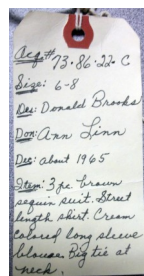 Acq# 73.86.22.C
Size: 6-8
Des: Donald Brooks
Don: Ann Linn
Dec: about 1965
Item: 3 pc. brown
sequin suit. Street
length skirt. Cream
colored long sleeve
blouse. Big tie at
neck.